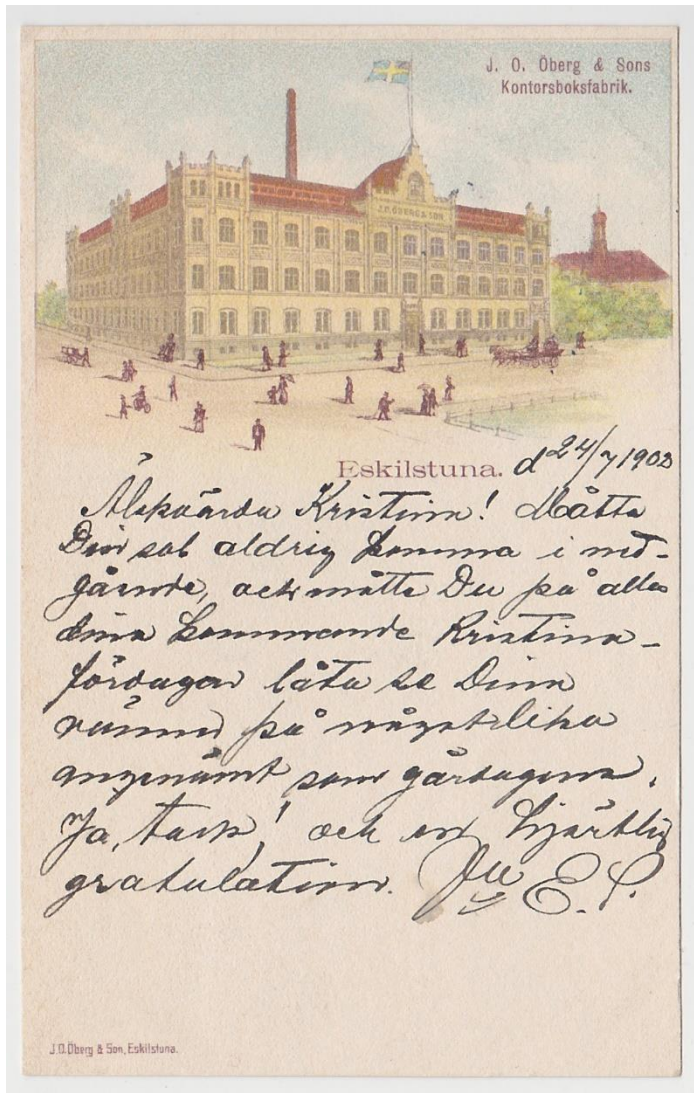 J. O. Öberg & Sons
Kontorsboksfabrik.
J.O. ÖBERG & SON.
Eskilstuna. d 24/7 1902
Älskvärda Kristina! Måtte
Din sol aldrig komma i ned-
gående, och måtte Du på alla
dina kommande Kristina-
födagar låta se Dina
vänner på något lika
angenämt som gårdagens.
Ja, tack! och en hjärtlig
gratulation. E. P.
J.O. Öberg & Son, Eskilstuna.